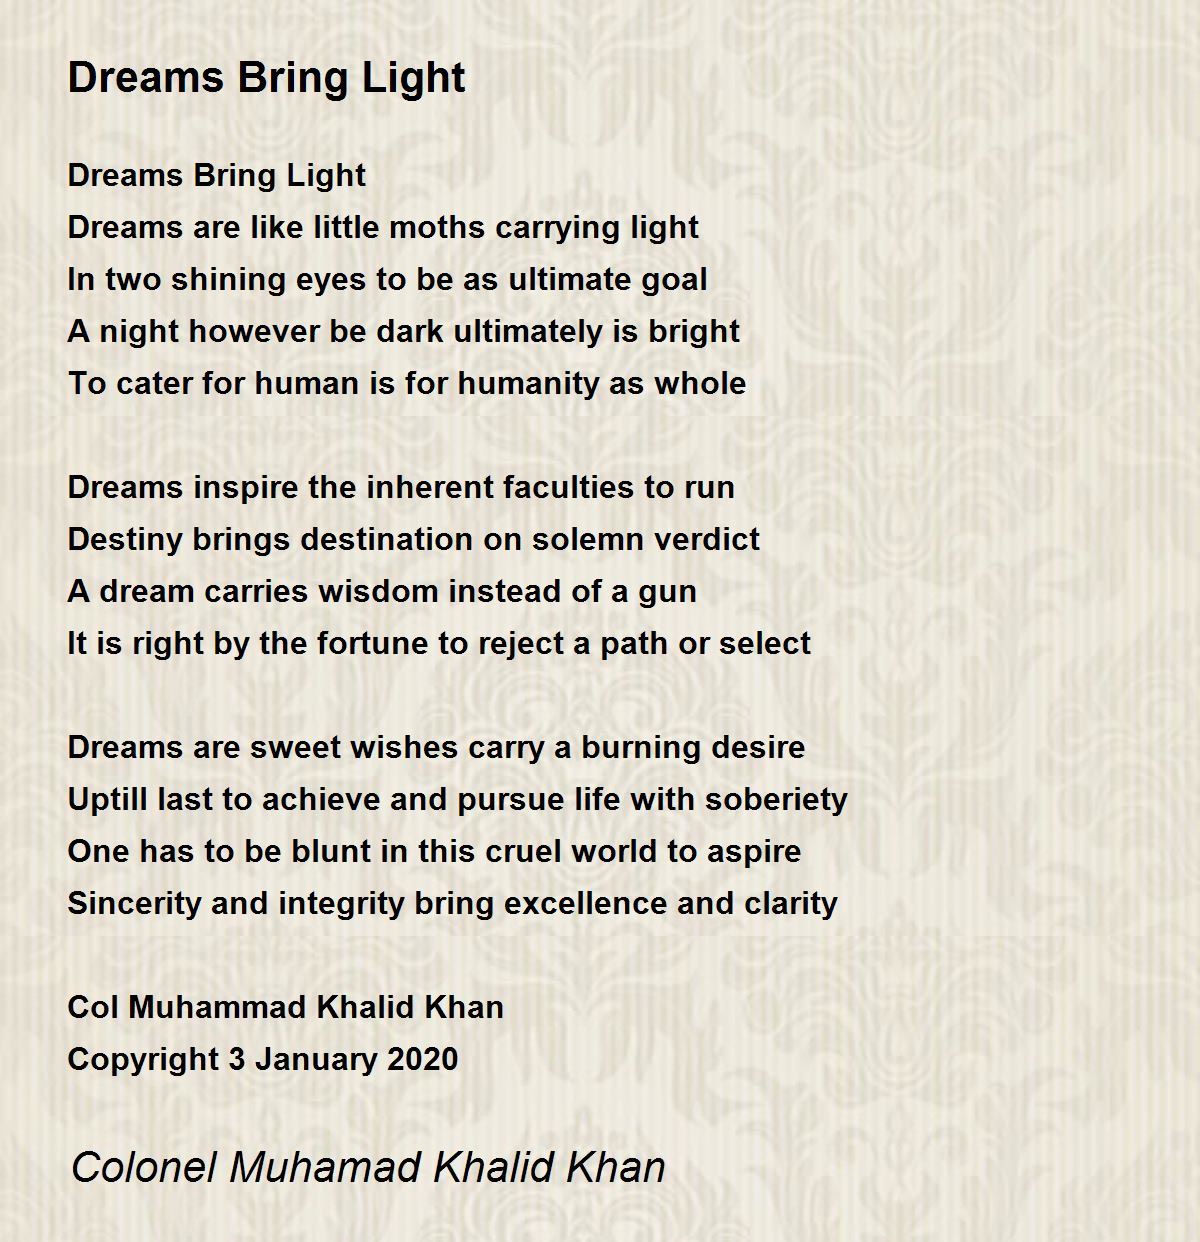 Dreams Bring Light
Dreams Bring Light
Dreams are like little moths carrying light
In two shining eyes to be as ultimate goal
A night however be dark ultimately is bright
To cater for human is for humanity as whole
Dreams inspire the inherent faculties to run
Destiny brings destination on solemn verdict
A dream carries wisdom instead of a gun
It is right by the fortune to reject a path or select
Dreams are sweet wishes carry a burning desire
Uptill last to achieve and pursue life with soberiety
One has to be blunt in this cruel world to aspire
Sincerity and integrity bring excellence and clarity
Col Muhammad Khalid Khan
Copyright 3 January 2020
Colonel Muhamad Khalid Khan